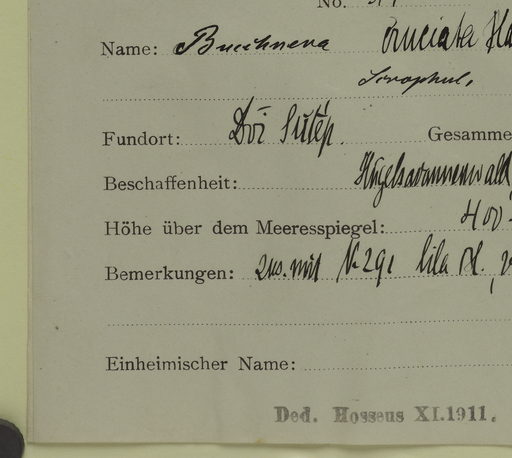 No.
Name: Buchnera cruciata Ha
Scrophul.
Fundort: Dŏi Sutēp. Gesamme
Beschaffenheit: Hügelsavannenwald
Höhe über dem Meeresspiegel: 400
Bemerkungen: zus. mit N 291 lila Bl.
Einheimischer Name:
Ded. Hosseus XI.1911.